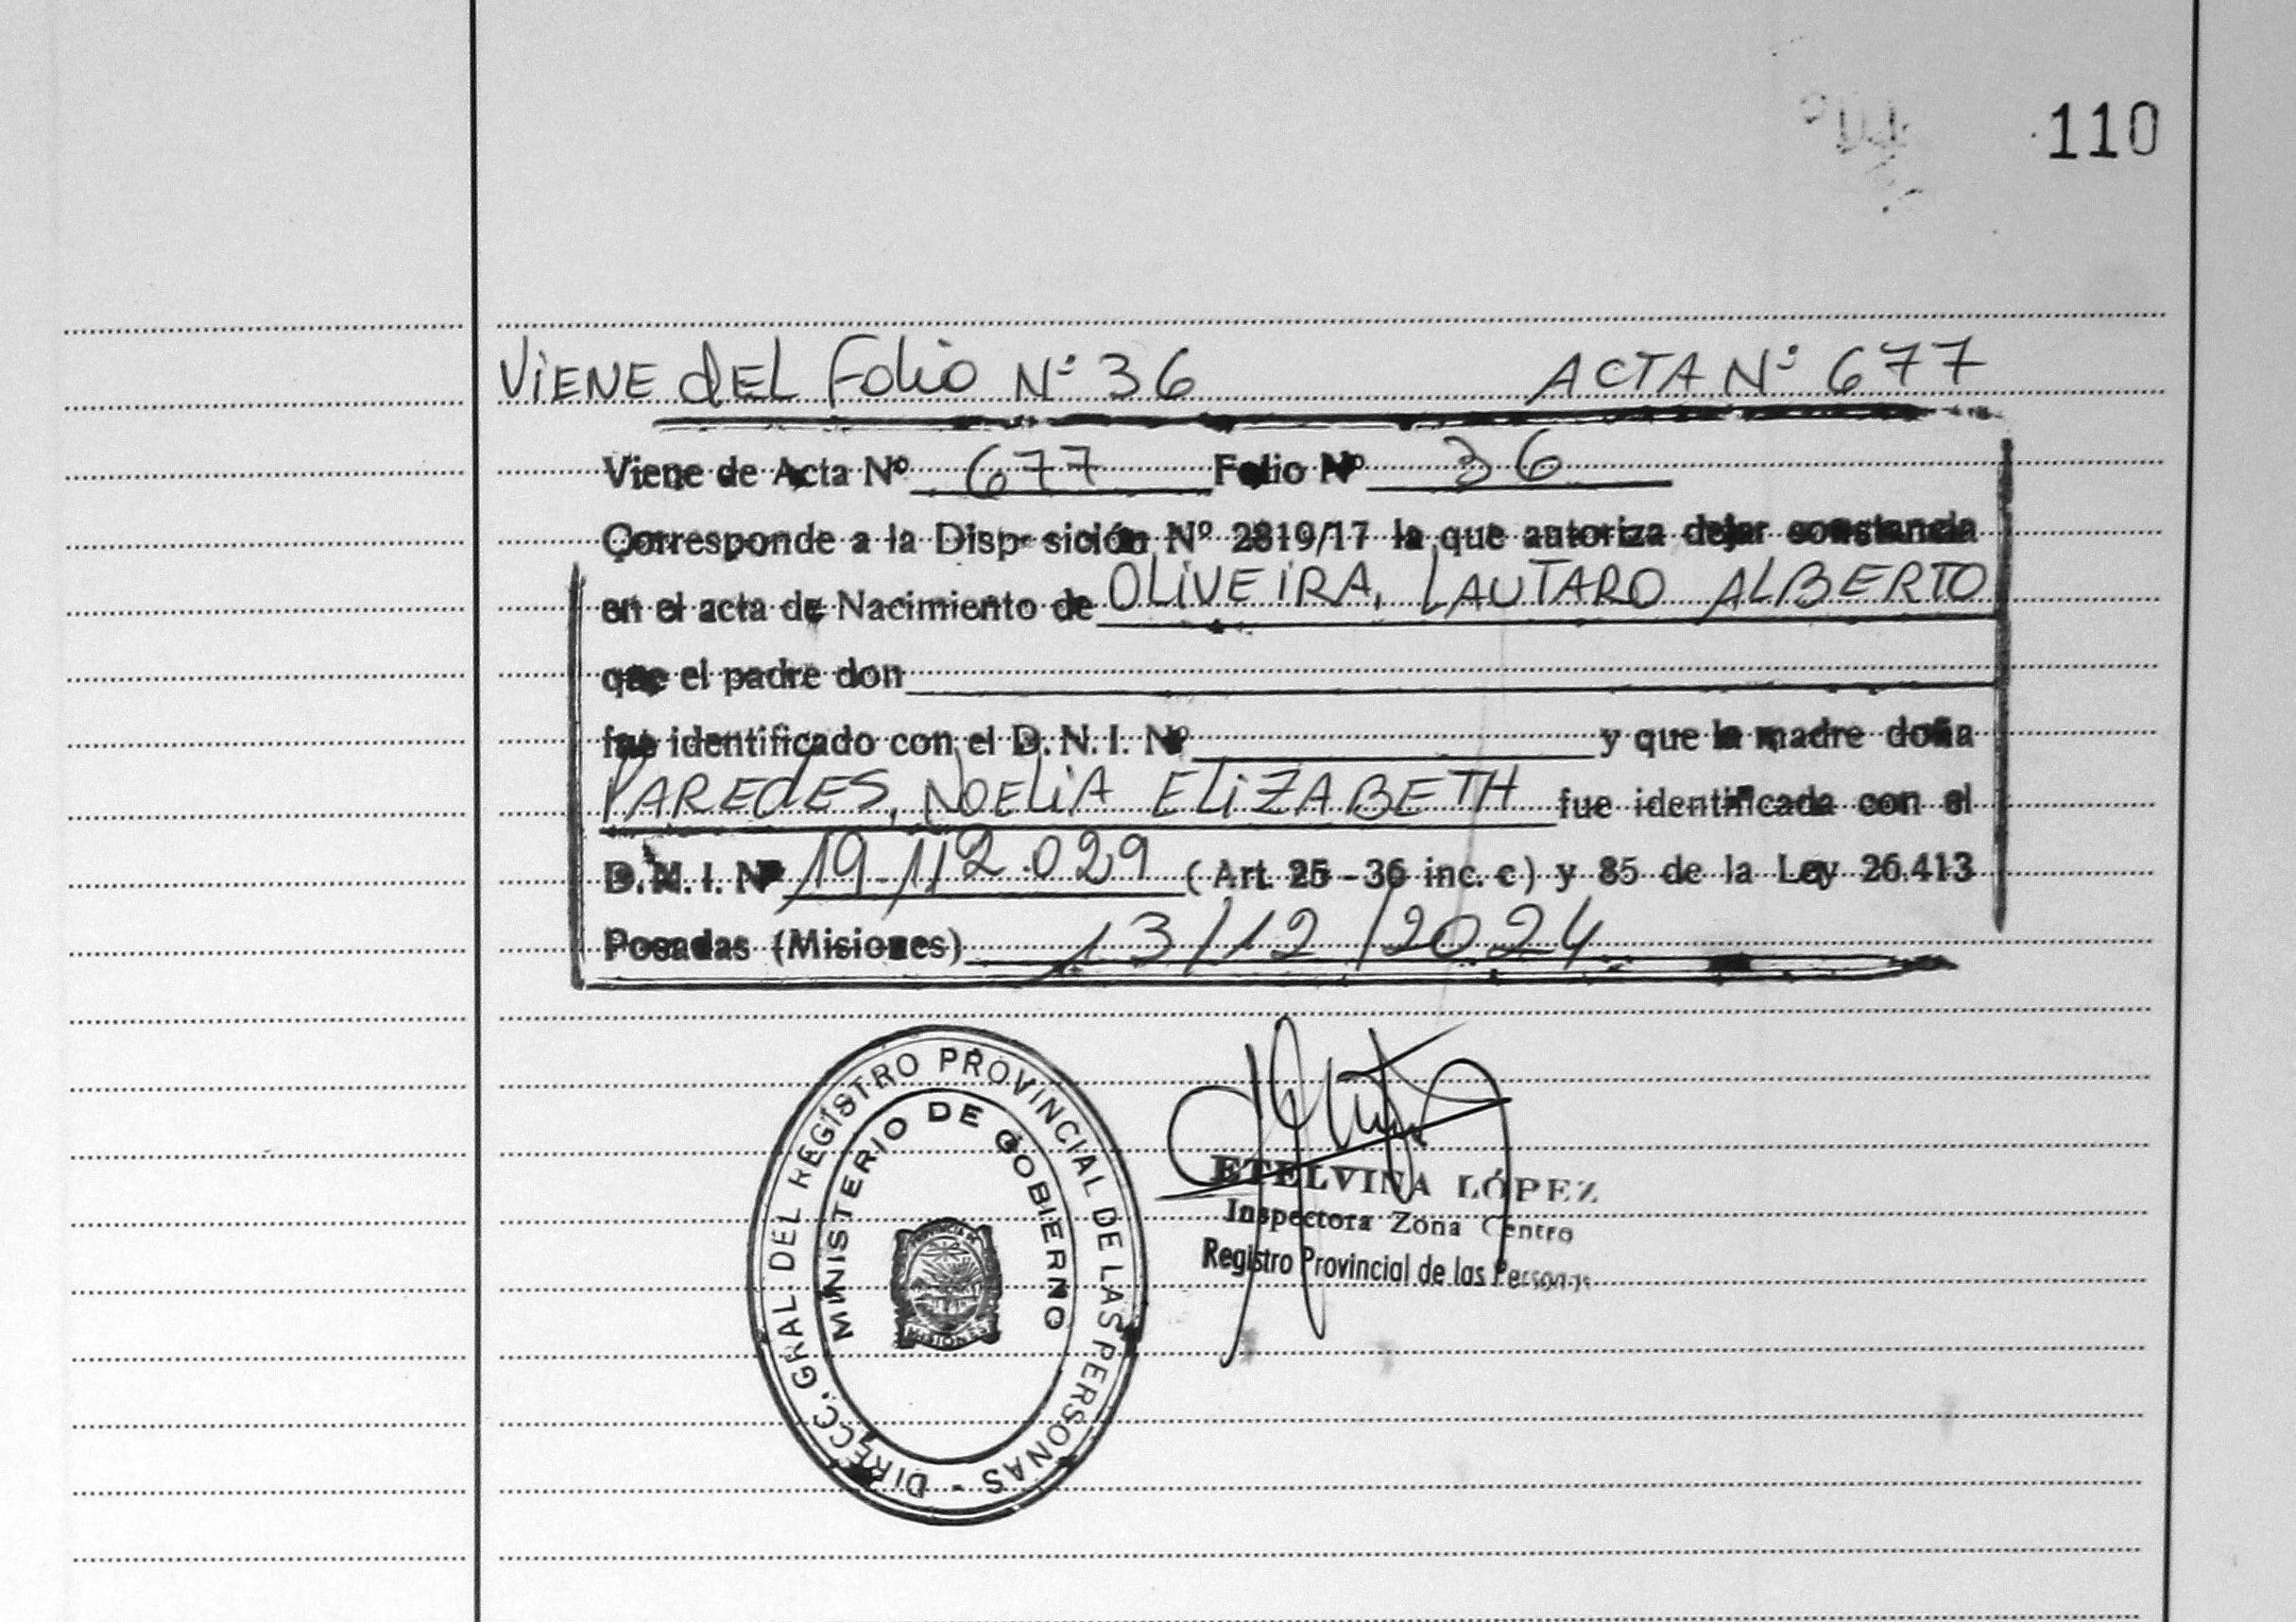 110
VIENE dEL Folio Nº 36 ACTA Nº 677
Viene de Acta Nº 677 Folio Nº 36
Corresponde a la Disp sición Nº 2819/17 la que autoriza dejar constancia
en el acta de Nacimiento de OLIVEIRA, LAUTARO ALBERTO
que el padre don
fue identificado con el D.N.I. Nº y que la madre doña
PAREdES, NOELIA ELIZABETH fue identificada con el
D.N.I. Nº 19.112.029 (Art. 25-36 inc. c) y 85 de la Ley 26.413
Posadas (Misiones) 13/12/2024
DIRECC. GRAL DEL REGISTRO PROVINCIAL DE LAS PERSONAS -
MINISTERIO DE GOBIERNO
PROVINCIA DE
MISIONES
ETELVINA LÓPEZ
Inspectora Zona Centro
Registro Provincial de las Personas